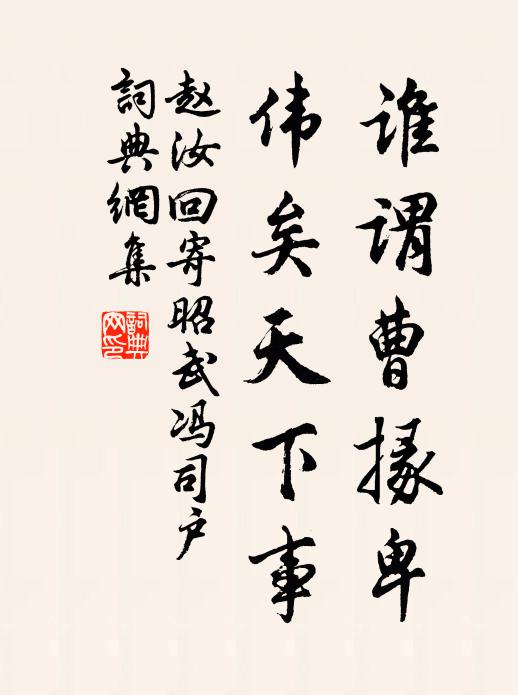 谁谓曹掾卑
伟矣天下事
赵汝回寄昭武冯司户
詞典網集
詞典